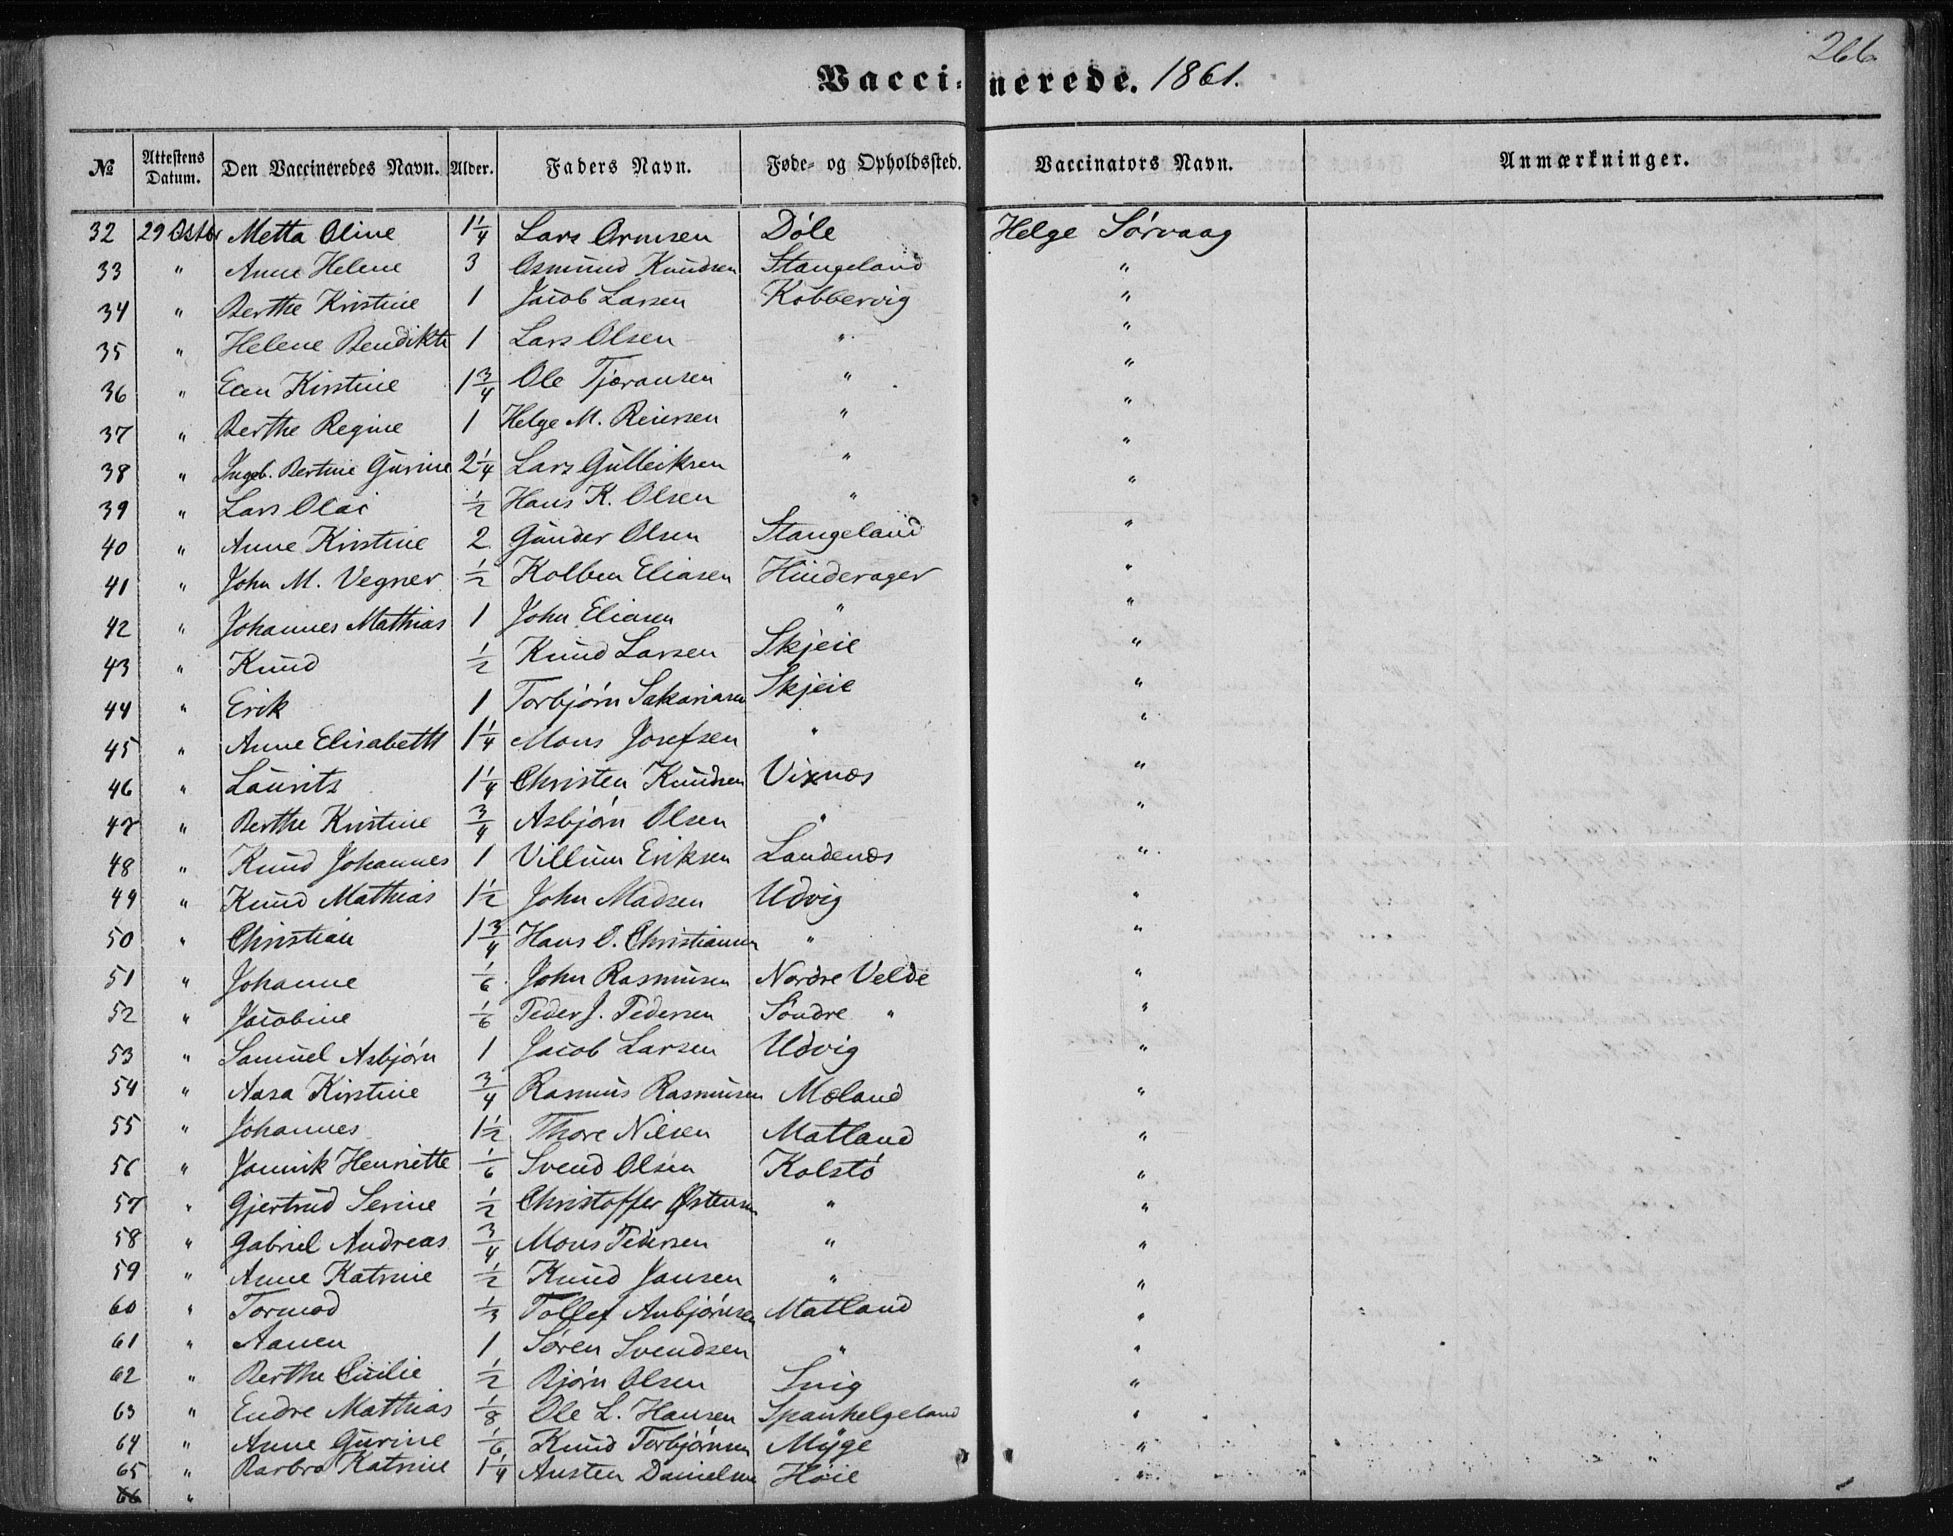 266
Vaccinerede. 1861.
№ Attestens Datum. Den Vaccineredes Navn. Alder. Faders Navn. Føde- og Opholdssted. Vaccinators Navn. Anmærkninger.
32 29 Octbr Metta Oline 1 1/4 Lars Ormsen Døle Helge Sørvaag
33 " Anne Helene 3 Osmund Knudsen Stangeland "
34 " Berthe Kristine 1 Jacob Larsen Kobbervig "
35 " Helene Bendikte 1 Lars Olsen " "
36 " Elen Kirstine 1 3/4 Ole Tjøransen " "
37 " Berthe Regine 1 Helge M. Reiersen " "
38 " Ingeb. Bertine Gurine 2 1/4 Lars Gulleiksen " "
39 " Lars Olai 1/2 Hans K. Olsen " "
40 " Anne Kristine 2 Gunder Olsen Stangeland "
41 " John M. Vegner 1/2 Kolben Eliasen Hinderager "
42 " Johannes Mathias 1 John Eliasen " "
43 " Knud 1/2 Knud Larsen Skjeie "
44 " Erik 1 Torbjørn Sakariasen Skjeie "
45 " Anne Elisabeth 1 1/4 Mons Josefsen " "
46 " Laurits 1 1/4 Christen Knudsen Vixnæs "
47 " Berthe Kristine 3/4 Asbjørn Olsen " "
48 " Knud Johannes 1 Villum Eriksen Landenæs "
49 " Knud Mathias 1 1/2 John Madsen Udvig "
50 " Christian 1 3/4 Hans O. Christiansen " "
51 " Johanne 1/6 John Rasmusen Nordre Velde "
52 " Jacobine 1/6 Peder J. Pedersen Søndre " "
53 " Samuel Asbjørn 1 Jacob Larsen Udvig "
54 " Aasa Kirstine 3/4 Rasmus Rasmusen Mæland "
55 " Johannes 1 1/2 Thore Nilsen Matland "
56 " Jannik Henriette 1/6 Svend Olsen Kolstø "
57 " Gjertrud Serine 1/2 Christoffer Østensen " "
58 " Gabriel Andreas 3/4 Mons Pedersen " "
59 " Anne Katrine 1/2 Knud Jansen " "
60 " Tormod 1/3 Tollef Anbjørnsen Matland "
61 " Aanen 1 Søren Svendsen " "
62 " Berthe Cicilie 1/2 Bjørn Olsen Snig "
63 " Endre Mathias 1/8 Ole L. Hansen Spanhelgeland "
64 " Anne Gurine 1/6 Knud Torbjørnsen Myge "
65 " Barbro Katrine 1 1/4 Austen Danielsen Høie "
66 "